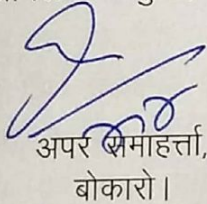 अपर समाहर्त्ता,
बोकारो।